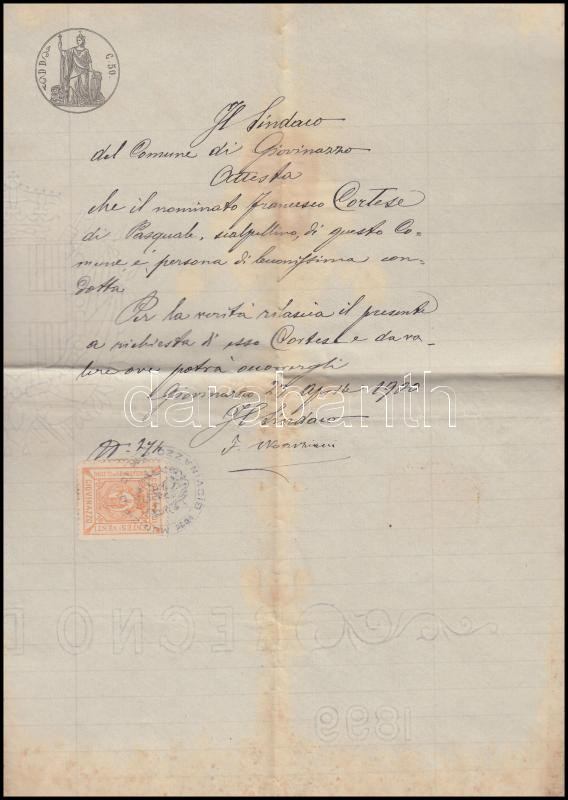 C. 50.
Il Sindaco
del Comune di Giovinazzo
Attesta
che il nominato Francesco Cortese
di Pasquale, scalpellino, di questo Co-
mune, è persona di buonissima con-
dotta.
Per la verità rilascia il presente
a richiesta di esso Cortese e da va-
lere ove potrà occorrergli
Giovinazzo 2 Aprile 1900
Il Sindaco
N. 274
GIOVINAZZO
CENTESIMI VENTI
GIOVINAZZO
darabanth
REGNO D
1899